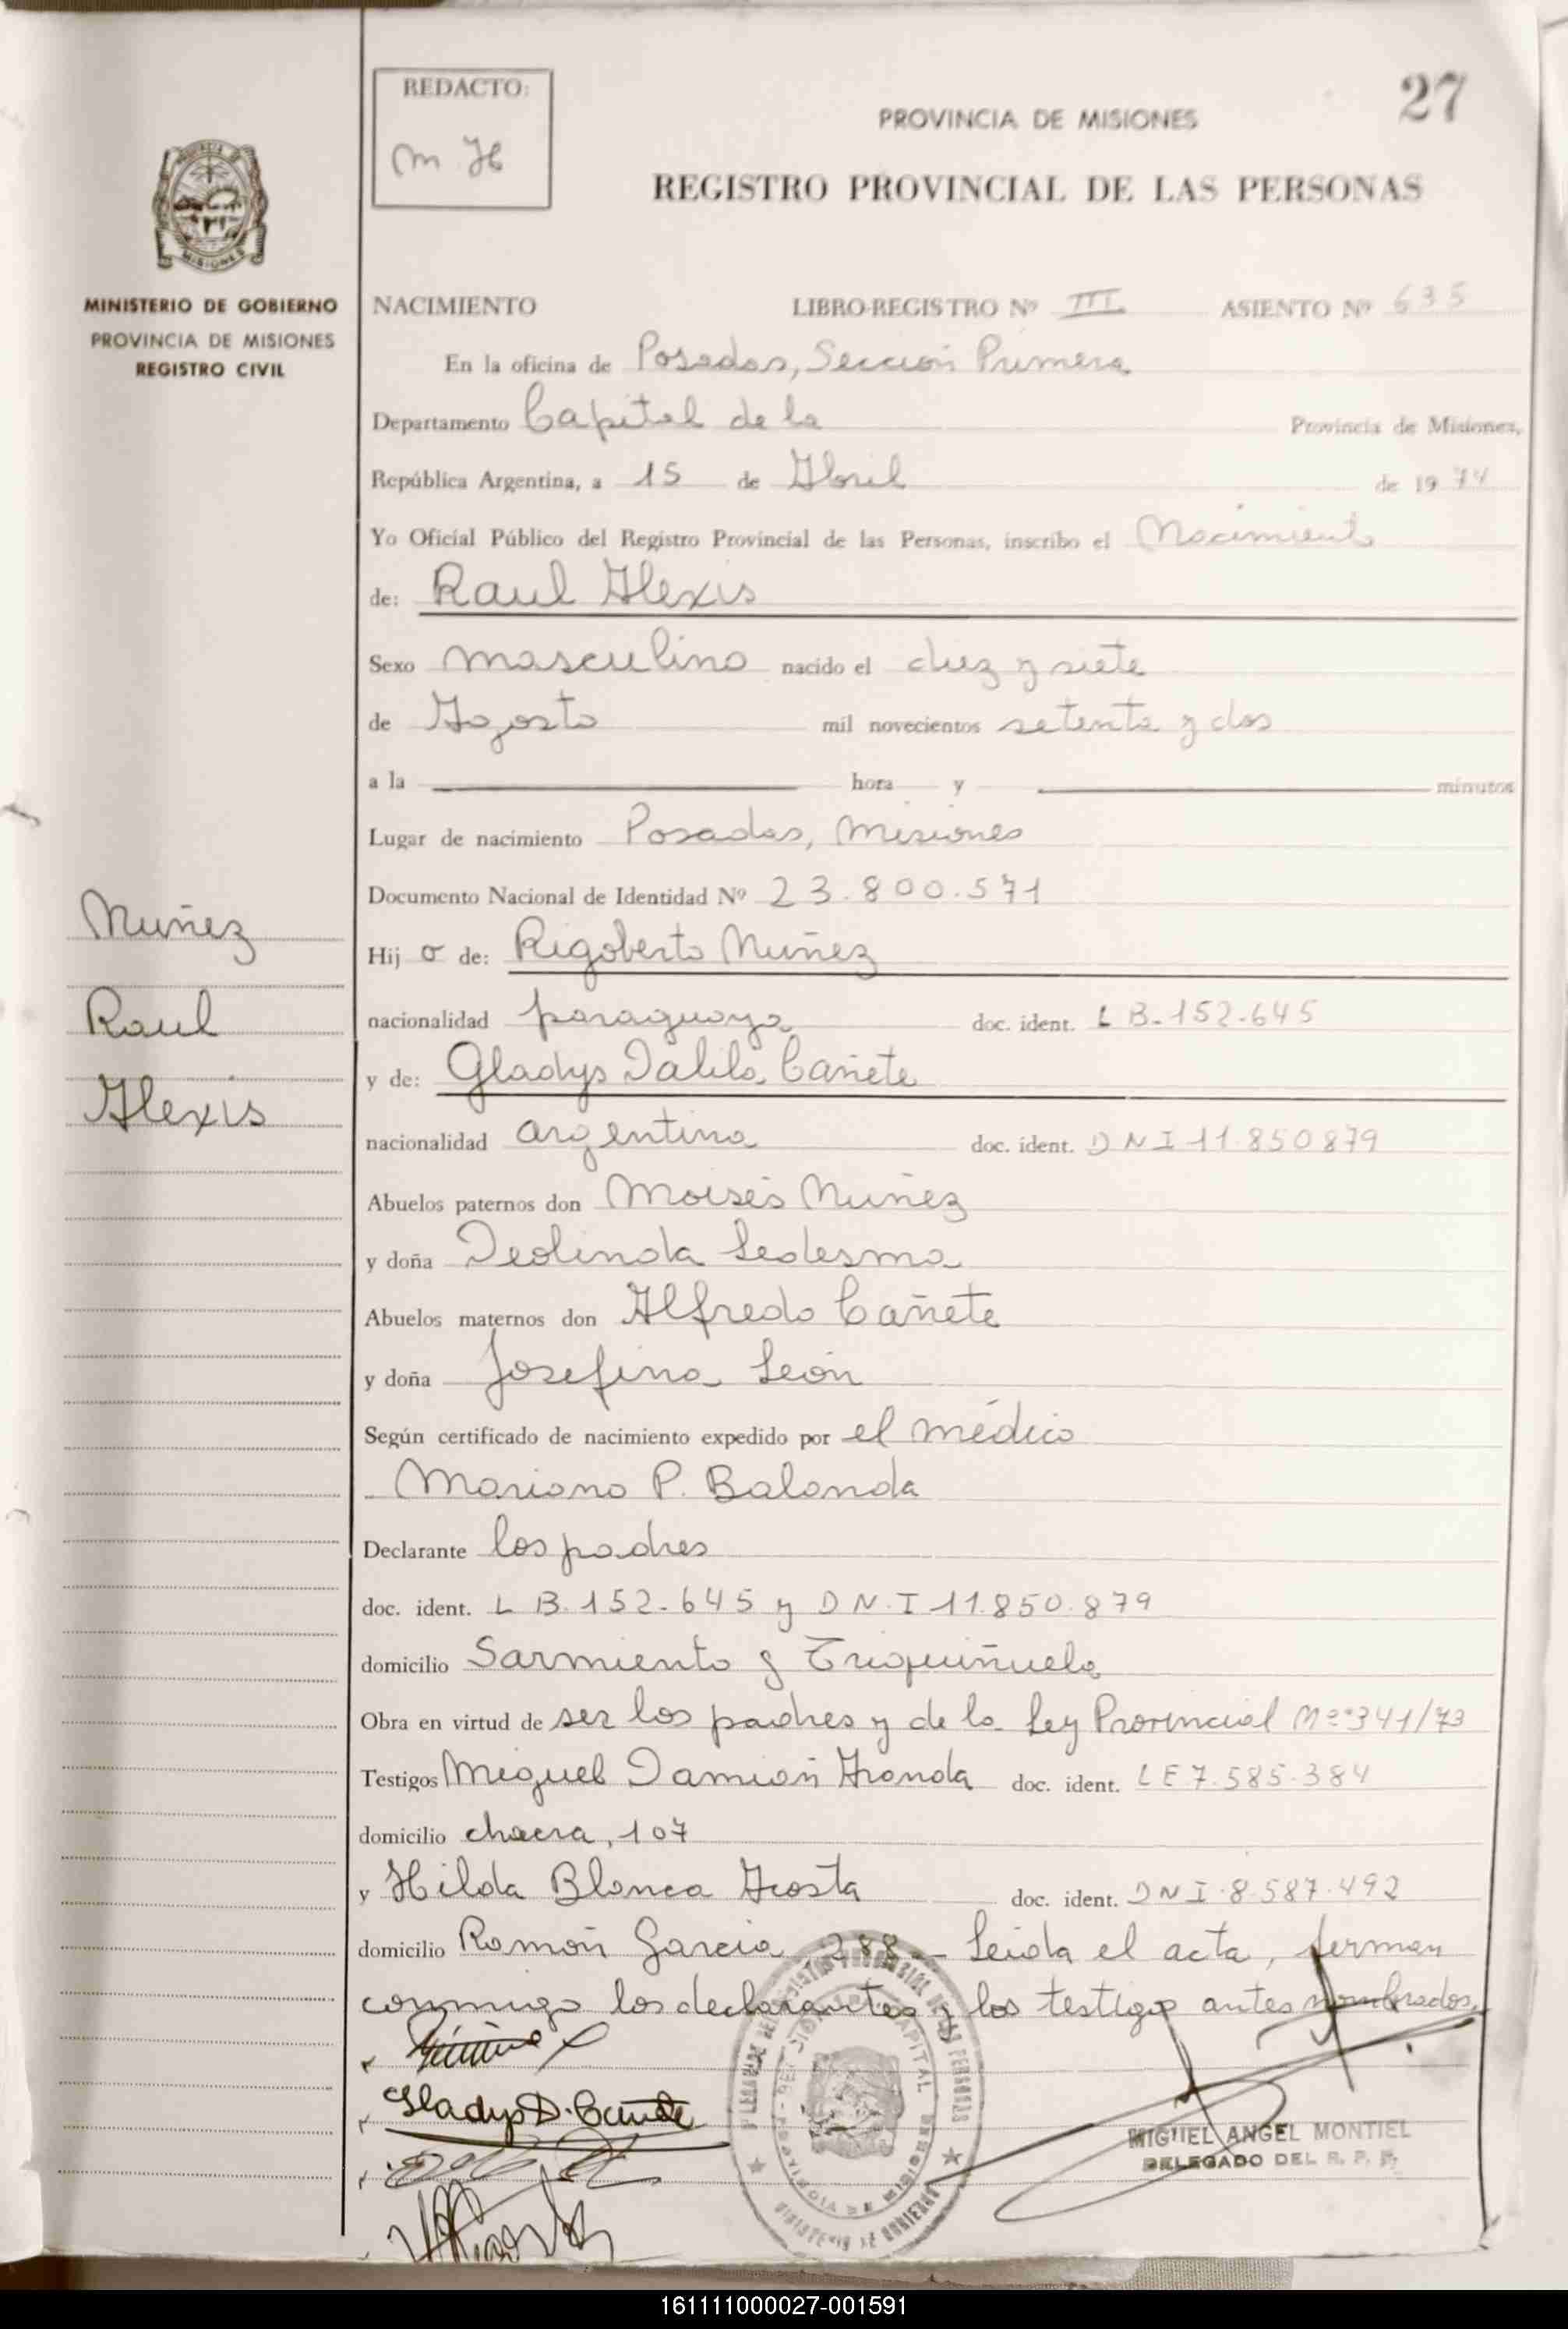 REDACTO:
m H
27
PROVINCIA DE MISIONES
REGISTRO PROVINCIAL DE LAS PERSONAS
MISIONES
MINISTERIO DE GOBIERNO
PROVINCIA DE MISIONES
REGISTRO CIVIL
NACIMIENTO LIBRO-REGISTRO Nº III ASIENTO Nº 635
En la oficina de Posadas, Sección Primera
Departamento Capital de la Provincia de Misiones,
República Argentina, a 15 de Abril de 1974
Yo Oficial Público del Registro Provincial de las Personas, inscribo el Nacimiento
de: Raul Alexis
Sexo masculino nacido el diez y siete
de Agosto mil novecientos setenta y dos
a la hora y minutos
Lugar de nacimiento Posadas, Misiones
Documento Nacional de Identidad Nº 23.800.571
Muñez
Raul
Alexis
Hijo de: Rigoberto Nuñez
nacionalidad paraguaya doc. ident. L B-152-645
y de: Gladys Dalila Cañete
nacionalidad argentina doc. ident. DNI 11.850879
Abuelos paternos don Moisés Nuñez
y doña Deolinda Ledesma
Abuelos maternos don Alfredo Cañete
y doña Josefina León
Según certificado de nacimiento expedido por el médico
Mariano P. Balanda
Declarante los padres
doc. ident. L B.152-645 y DN.I 11.850.879
domicilio Sarmiento y
Obra en virtud de ser los padres y de la Ley Provincial Nº 341/73
Testigos Miguel Damión Aranda doc. ident. LE 7.585.384
domicilio chacra, 107
y Hilda Blanca Acosta doc. ident. DNI.8.587.492
domicilio Ramón Garcia 288 - Leida el acta, firman
conmigo los declarantes y los testigos antes nombrados.
Gladys D. Cañete
MIGUEL ANGEL MONTIEL
DELEGADO DEL R. P. P.
161111000027-001591